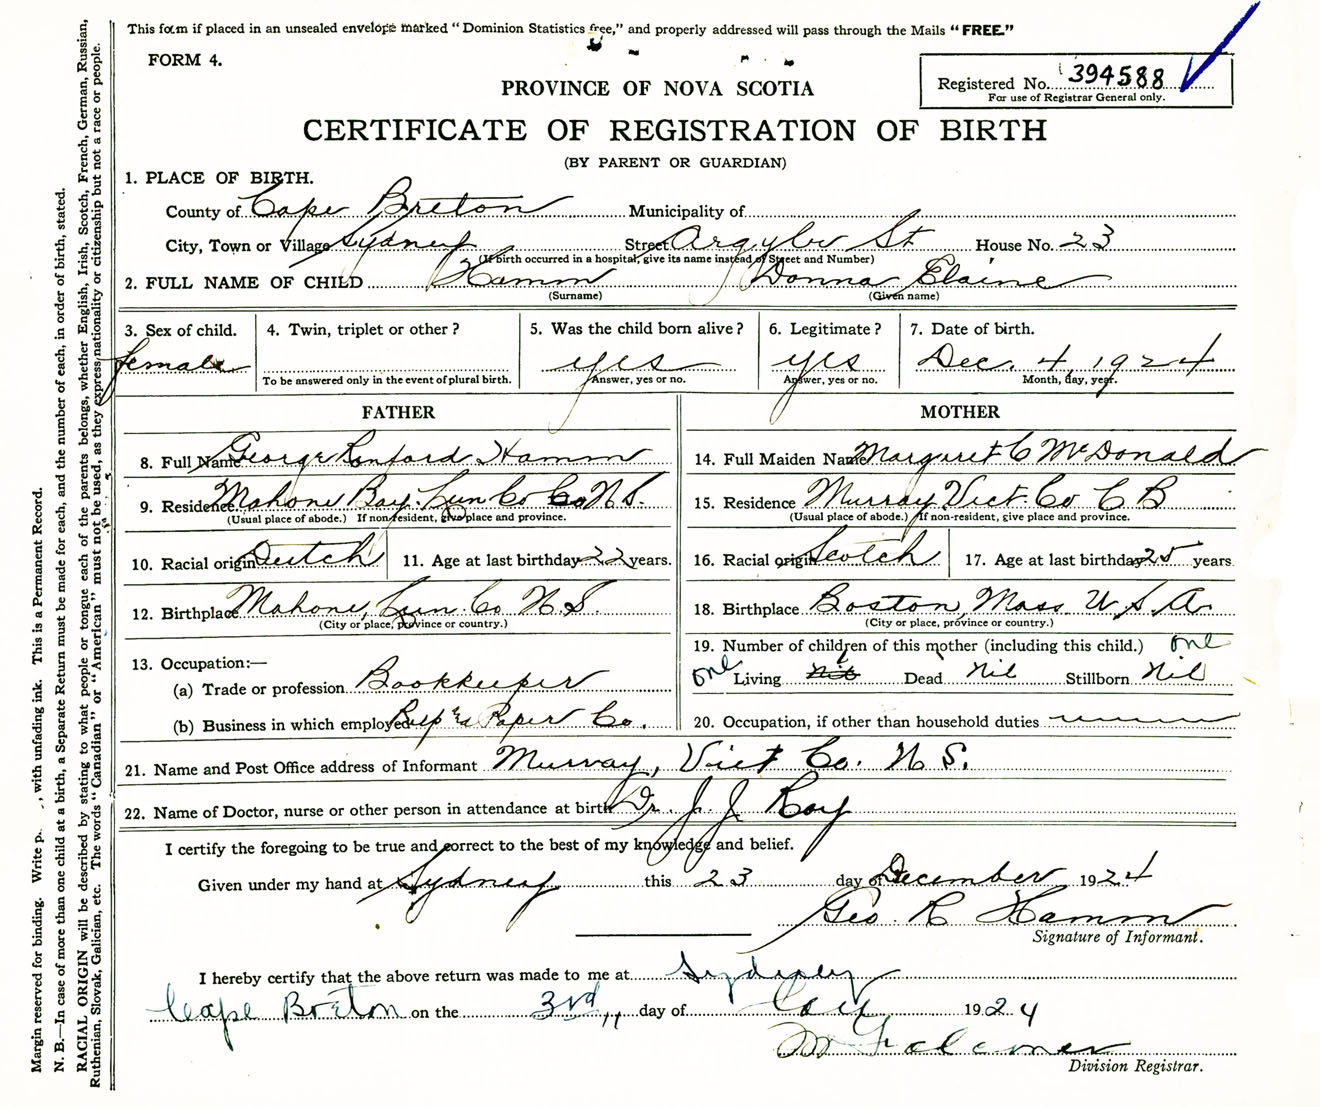 This form if placed in an unsealed envelope marked “Dominion Statistics free,” and properly addressed will pass through the Mails “FREE.”
FORM 4.
Registered No. 394588
For use of Registrar General only.
PROVINCE OF NOVA SCOTIA
CERTIFICATE OF REGISTRATION OF BIRTH
(BY PARENT OR GUARDIAN)
1. PLACE OF BIRTH.
County of Cape Breton Municipality of
City, Town or Village Sydney Street Argyle St House No. 23
(If birth occurred in a hospital, give its name instead of Street and Number)
2. FULL NAME OF CHILD Hamm Donna Elaine
(Surname) (Given name)
3. Sex of child. 4. Twin, triplet or other? 5. Was the child born alive? 6. Legitimate? 7. Date of birth.
female yes yes Dec. 4, 1924
To be answered only in the event of plural birth. Answer, yes or no. Answer, yes or no. Month, day, year.
FATHER
8. Full Name George Ranford Hamm
9. Residence Mahone Bay Lun Co Co N S.
(Usual place of abode.) If non-resident, give place and province.
10. Racial origin Dutch 11. Age at last birthday 22 years.
12. Birthplace Mahone, Lun Co N S.
(City or place, province or country.)
13. Occupation:—
(a) Trade or profession Bookkeeper
(b) Business in which employed Pulp & Paper Co.
MOTHER
14. Full Maiden Name Margaret C McDonald
15. Residence Murray Vict. Co C B
(Usual place of abode.) If non-resident, give place and province.
16. Racial origin Scotch 17. Age at last birthday 25 years
18. Birthplace Boston, Mass U. S. A.
(City or place, province or country.)
19. Number of children of this mother (including this child.) one
one Living Nil Dead Nil Stillborn Nil
20. Occupation, if other than household duties
21. Name and Post Office address of Informant Murray, Vict Co. N S.
22. Name of Doctor, nurse or other person in attendance at birth Dr. J. J. Roy
I certify the foregoing to be true and correct to the best of my knowledge and belief.
Given under my hand at Sydney this 23 day of December 1924
Geo. R Hamm
Signature of Informant.
I hereby certify that the above return was made to me at Sydney
Cape Breton on the 3rd day of 1924
Division Registrar.
Margin reserved for binding. Write with unfading ink. This is a Permanent Record.
N. B.—In case of more than one child at a birth, a Separate Return must be made for each, and the number of each, in order of birth, stated.
RACIAL ORIGIN will be described by stating to what people or tongue each of the parents belongs, whether English, Irish, Scotch, French, German, Russian,
Ruthenian, Slovak, Galician, etc. The words “Canadian” or “American” must not be used, as they express nationality or citizenship but not a race or people.